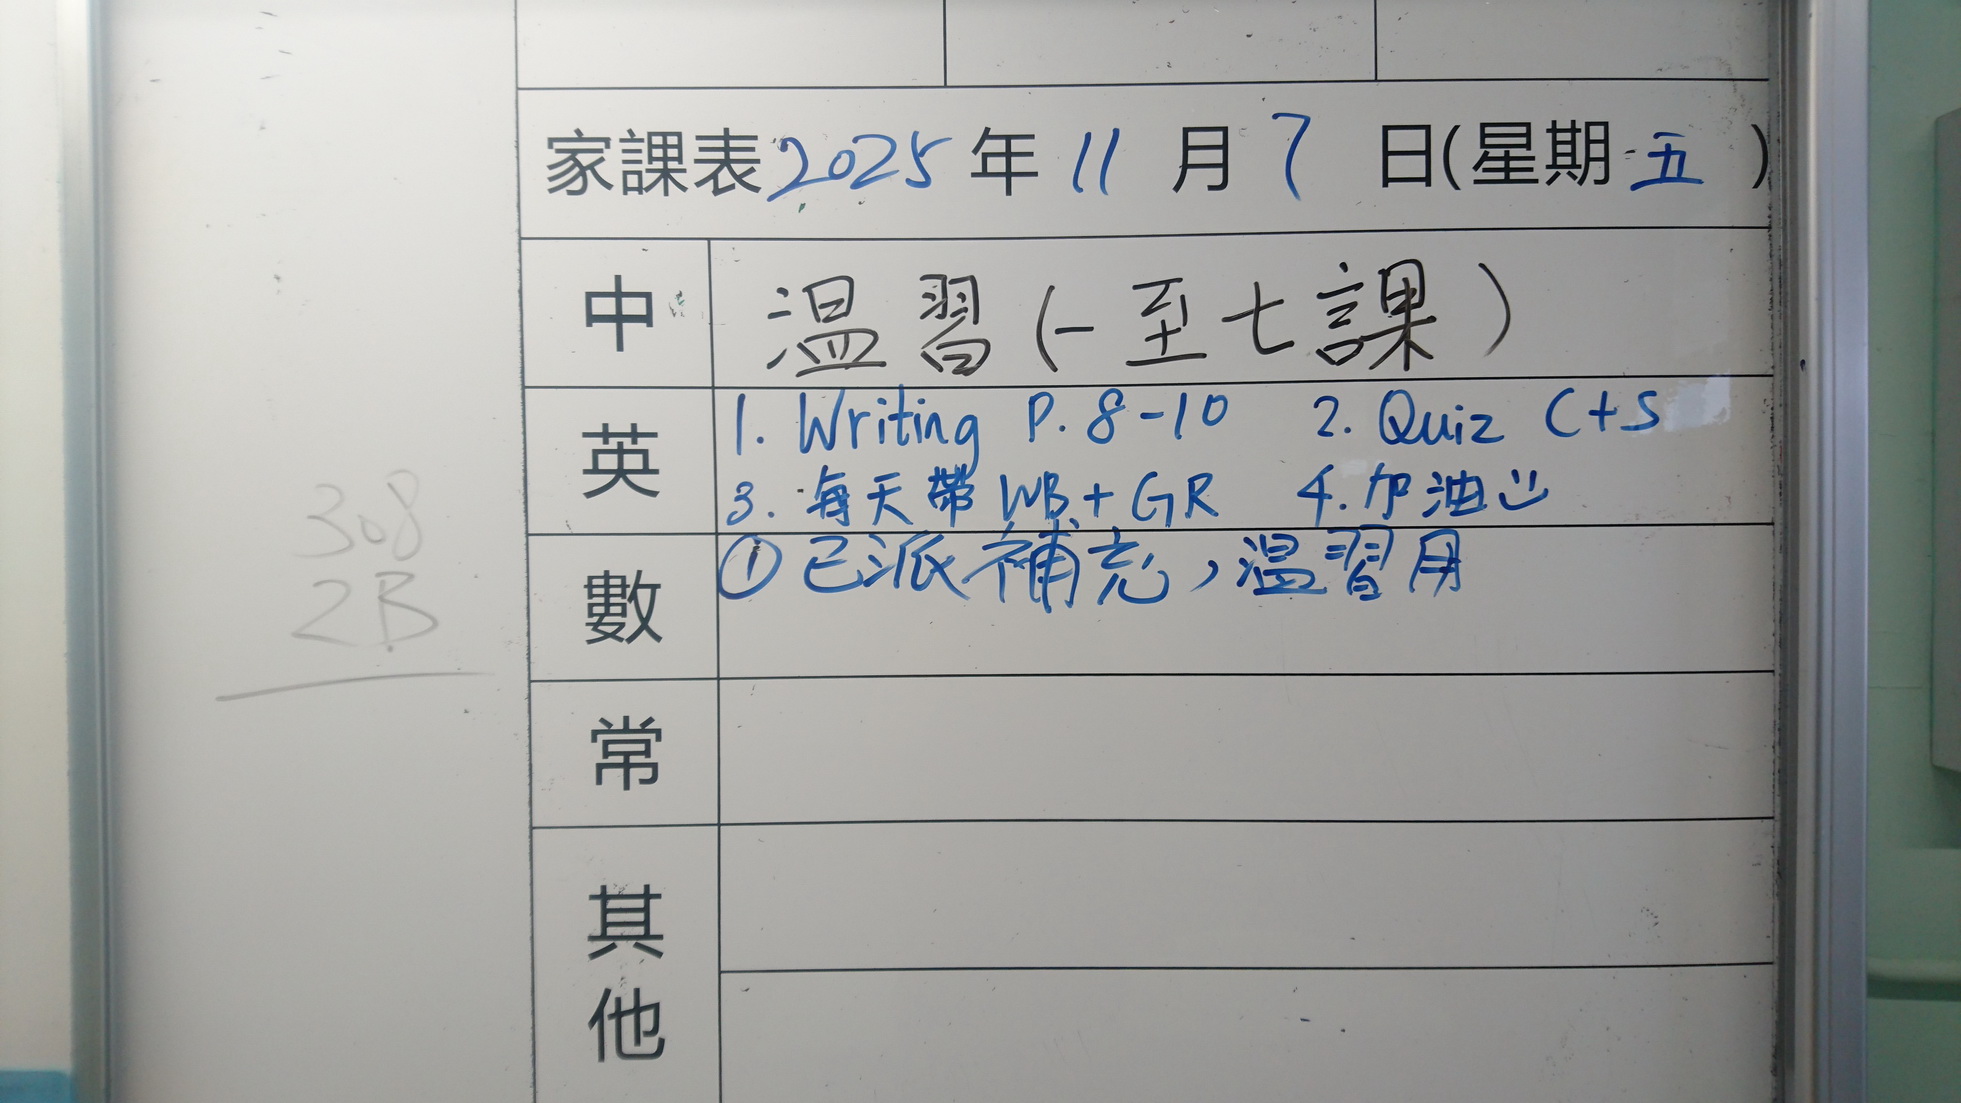 家課表2025年11月7日(星期五)
中 温習(一至七課)
英 1. Writing P. 8-10 2. Quiz C+S
3. 每天帶 WB + GR 4. 加油
數 ①已派補充,温習用
常
其他
308
2B